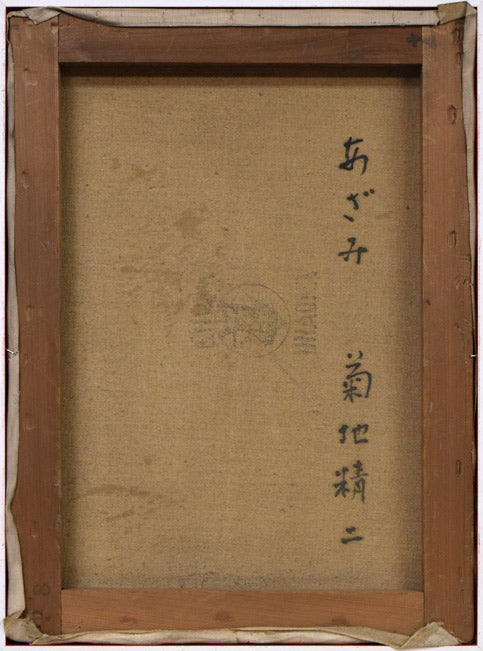 あざみ
菊地精二